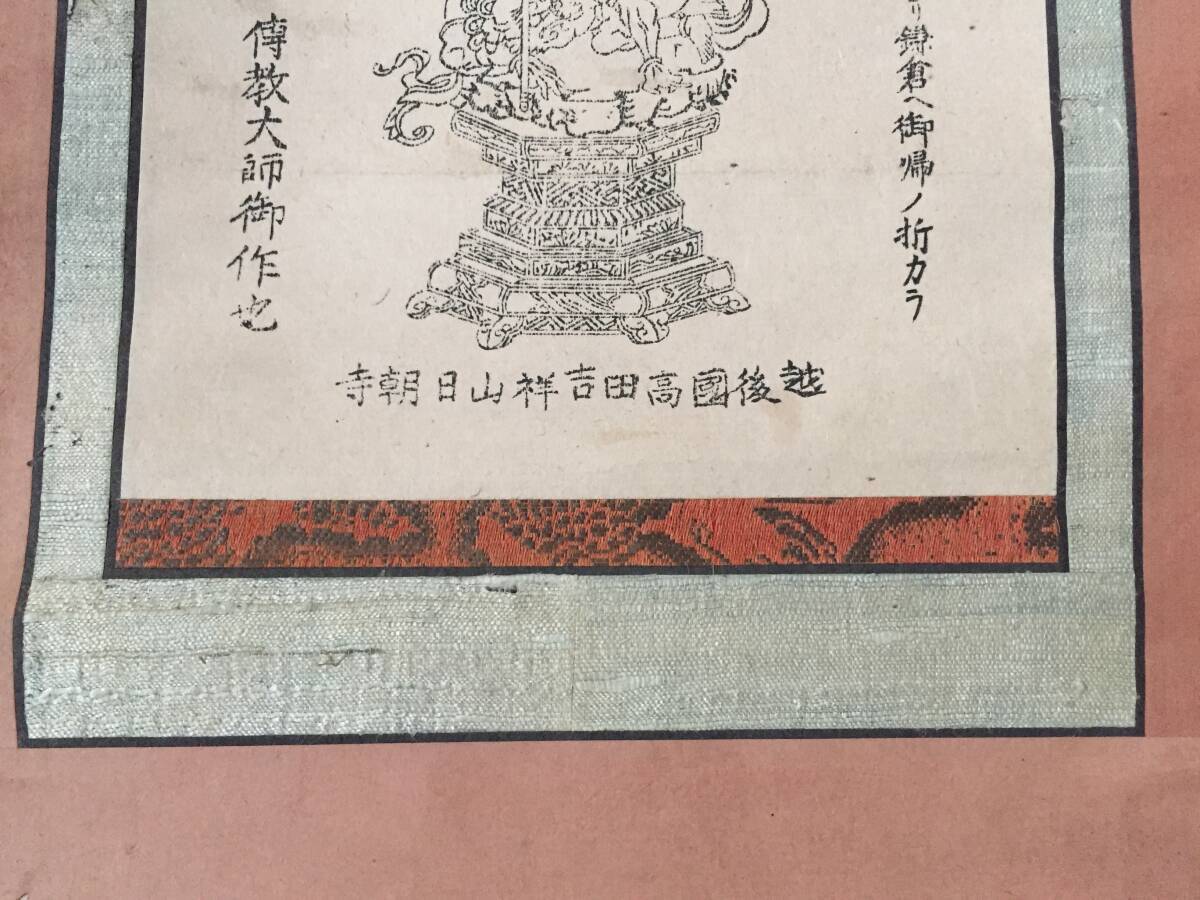 リ鎌倉へ御帰ノ折カラ
傳教大師御作也
越後國高田吉祥山日朝寺